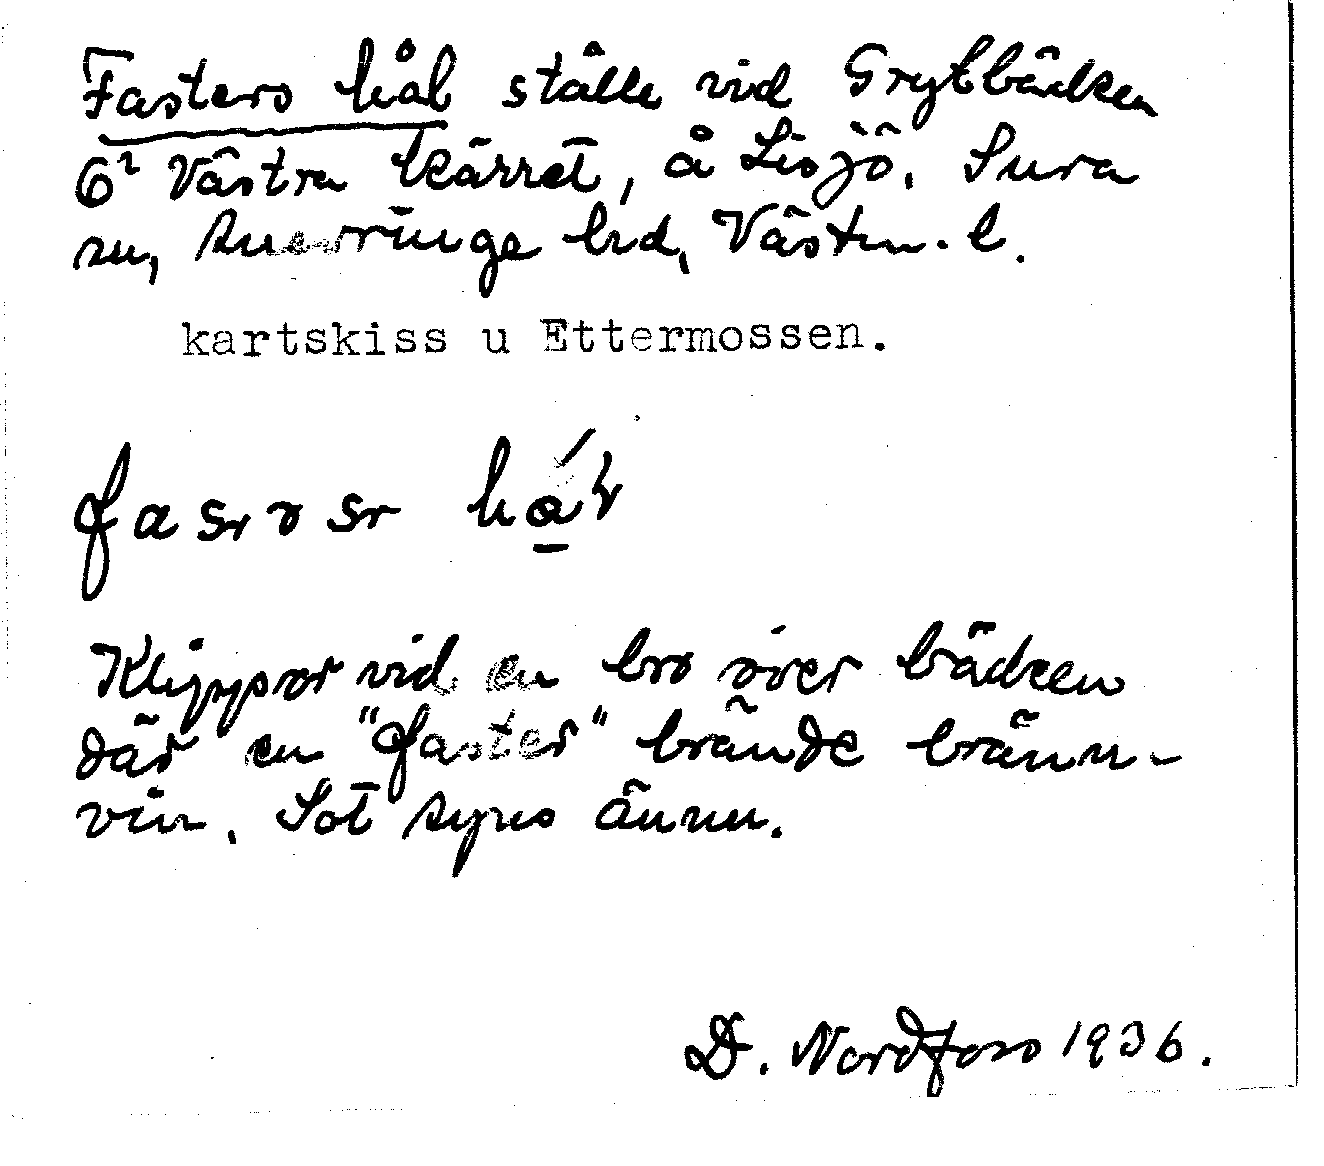 Fasters hål ställe vid Grytbäcken
6² Västra Kärret, å Lisjö. Sura
sn, Snevringe hd, Västm. l.
kartskiss u Ettermossen.
Klippor vid en bro över bäcken
där en "faster" brände bränn-
vin. Sot synes ännu.
D. Nordfors 1936.